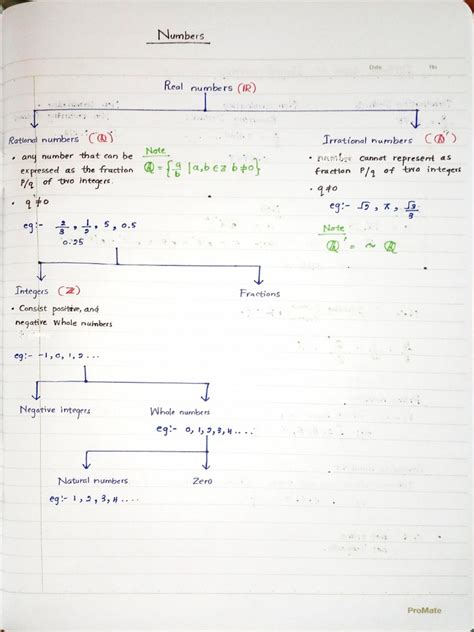 Numbers
Date No
Real numbers (ℝ)
Rational numbers (ℚ)
• any number that can be
expressed as the fraction
P/q of two integers.
• q ≠ 0
eg:- 2/3, 1/2, 5, 0.5
0.25
Note
ℚ = {a/b | a,b ∈ z b ≠ 0}
Irrational numbers (ℚ')
• number cannot represent as
fraction P/q of two integers
• q≠0
eg:- √2, π, √2/3
Note
ℚ' = ~ ℚ
Integers (ℤ)
• Consist positive, and
negative Whole numbers
eg:- -1, 0, 1, 2 ...
Fractions
Negative integers
Whole numbers
eg:- 0, 1, 2, 3, 4 ....
Natural numbers
eg:- 1, 2, 3, 4 ....
Zero
ProMate